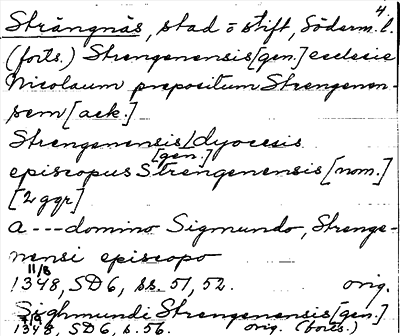 4.
Strängnäs, stad o stift, Söderm. l.
(forts.) Strengenensis [gen.] ecclesie
Nicolaum prepositum Strengenen-
sem [ack.]
Strengenensis [gen.] dyocesis
episcopus Strengenensis [nom.]
[2 ggr]
a --- domino Sigmundo, Strenge-
nensi episcopo
11/8 1348, SD 6, ss. 51, 52. orig.
Sighmundi Strengenensis [gen.]
1348, SD 6, s. 56. orig. (forts.)